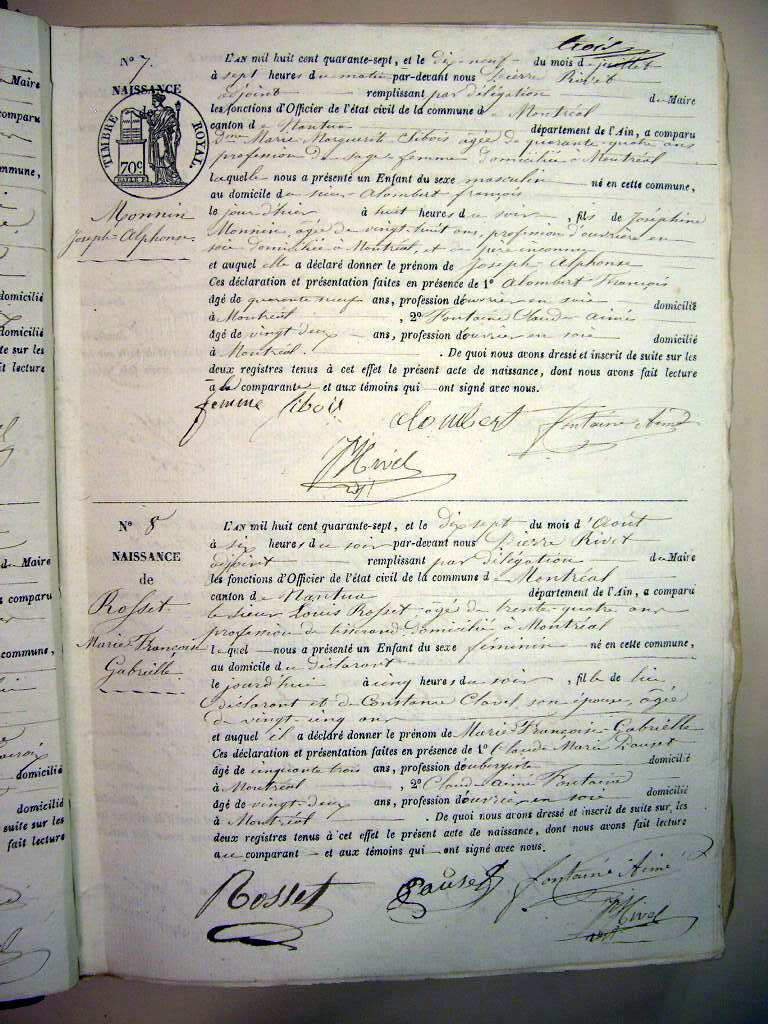 Nº 7.
NAISSANCE
de
TIMBRE ROYAL
70c
Monnin
Joseph-Alphonse.
trois
L'AN mil huit cent quarante-sept, et le dix-neuf du mois de juillet
à sept heures du matin par-devant nous Pierre Rivet
adjoint remplissant par délégation du Maire
les fonctions d'Officier de l'état civil de la commune de Montréal
canton de Nantua département de l'Ain, a comparu
Dme Marie Marguerite Sibois âgée de quarante-quatre ans
profession de sage femme domiciliée à Montréal
laquelle nous a présenté un Enfant du sexe masculin né en cette commune,
au domicile du sieur Alombert françois
le jour d'hier à huit heures du soir, fils de Joséphine
Monnin, âgée de vingt-huit ans, profession d'ouvrière en
soie domiciliée à Montréal, et de père inconnu
et auquel elle a déclaré donner le prénom de Joseph-Alphonse
Ces déclaration et présentation faites en présence de 1º Alombert François
âgé de quarante neuf ans, profession d'ouvrier en soie domicilié
à Montréal, 2º Fontaine Claude-Aimé
âgé de vingt deux ans, profession d'ouvrier en soie domicilié
à Montréal. De quoi nous avons dressé et inscrit de suite sur les
deux registres tenus à cet effet le présent acte de naissance, dont nous avons fait lecture
à la comparante et aux témoins qui ont signé avec nous.
femme Sibois alombert fontaine Aimé
Rivet
Nº 8
NAISSANCE
de
Rosset
Marie-Françoise
Gabrielle
L'AN mil huit cent quarante-sept, et le dix sept du mois d'Août
à six heures du soir par-devant nous Pierre Rivet
adjoint remplissant par délégation du Maire
les fonctions d'Officier de l'état civil de la commune de Montréal
canton de Nantua département de l'Ain, a comparu
le sieur Louis Rosset âgé de trente-quatre ans
profession de tisserand domicilié à Montréal
lequel nous a présenté un Enfant du sexe féminin né en cette commune,
au domicile du déclarant
le jourd'hui à cinq heures du soir, fille de lui
déclarant et de Constance Clavel son épouse, âgée
de vingt-cinq ans
et auquel il a déclaré donner le prénom de Marie-Françoise-Gabrielle
Ces déclaration et présentation faites en présence de 1º Claude Marie Pauset
âgé de cinquante trois ans, profession d'aubergiste domicilié
à Montréal, 2º Claude Aimé Fontaine
âgé de vingt-deux ans, profession d'ouvrier en soie domicilié
à Montréal. De quoi nous avons dressé et inscrit de suite sur les
deux registres tenus à cet effet le présent acte de naissance, dont nous avons fait lecture
au comparant et aux témoins qui ont signé avec nous.
Rosset Pauset fontaine Aimé
Rivet